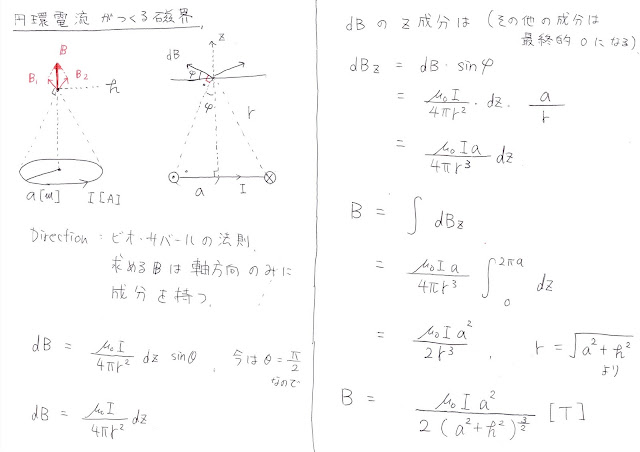 円環電流がつくる磁界
B
B₁
B₂
h
a[m]
I[A]
z
dB
φ
φ
r
a
I
Direction : ビオ・サバールの法則.
求めるBは軸方向のみに
成分を持つ.
dB = μ₀I / 4πr² dz sinθ , 今はθ = π/2
なので
dB = μ₀I / 4πr² dz
dBのz成分は (その他の成分は
最終的0になる)
dBz = dB · sinφ
= μ₀I / 4πr² · dz · a / r
= μ₀Ia / 4πr³ dz
B = ∫ dBz
= μ₀Ia / 4πr³ ∫₀^2πa dz
= μ₀Ia² / 2r³ , r = √(a² + h²)
より
B = μ₀Ia² / 2(a² + h²)^3/2 [T]